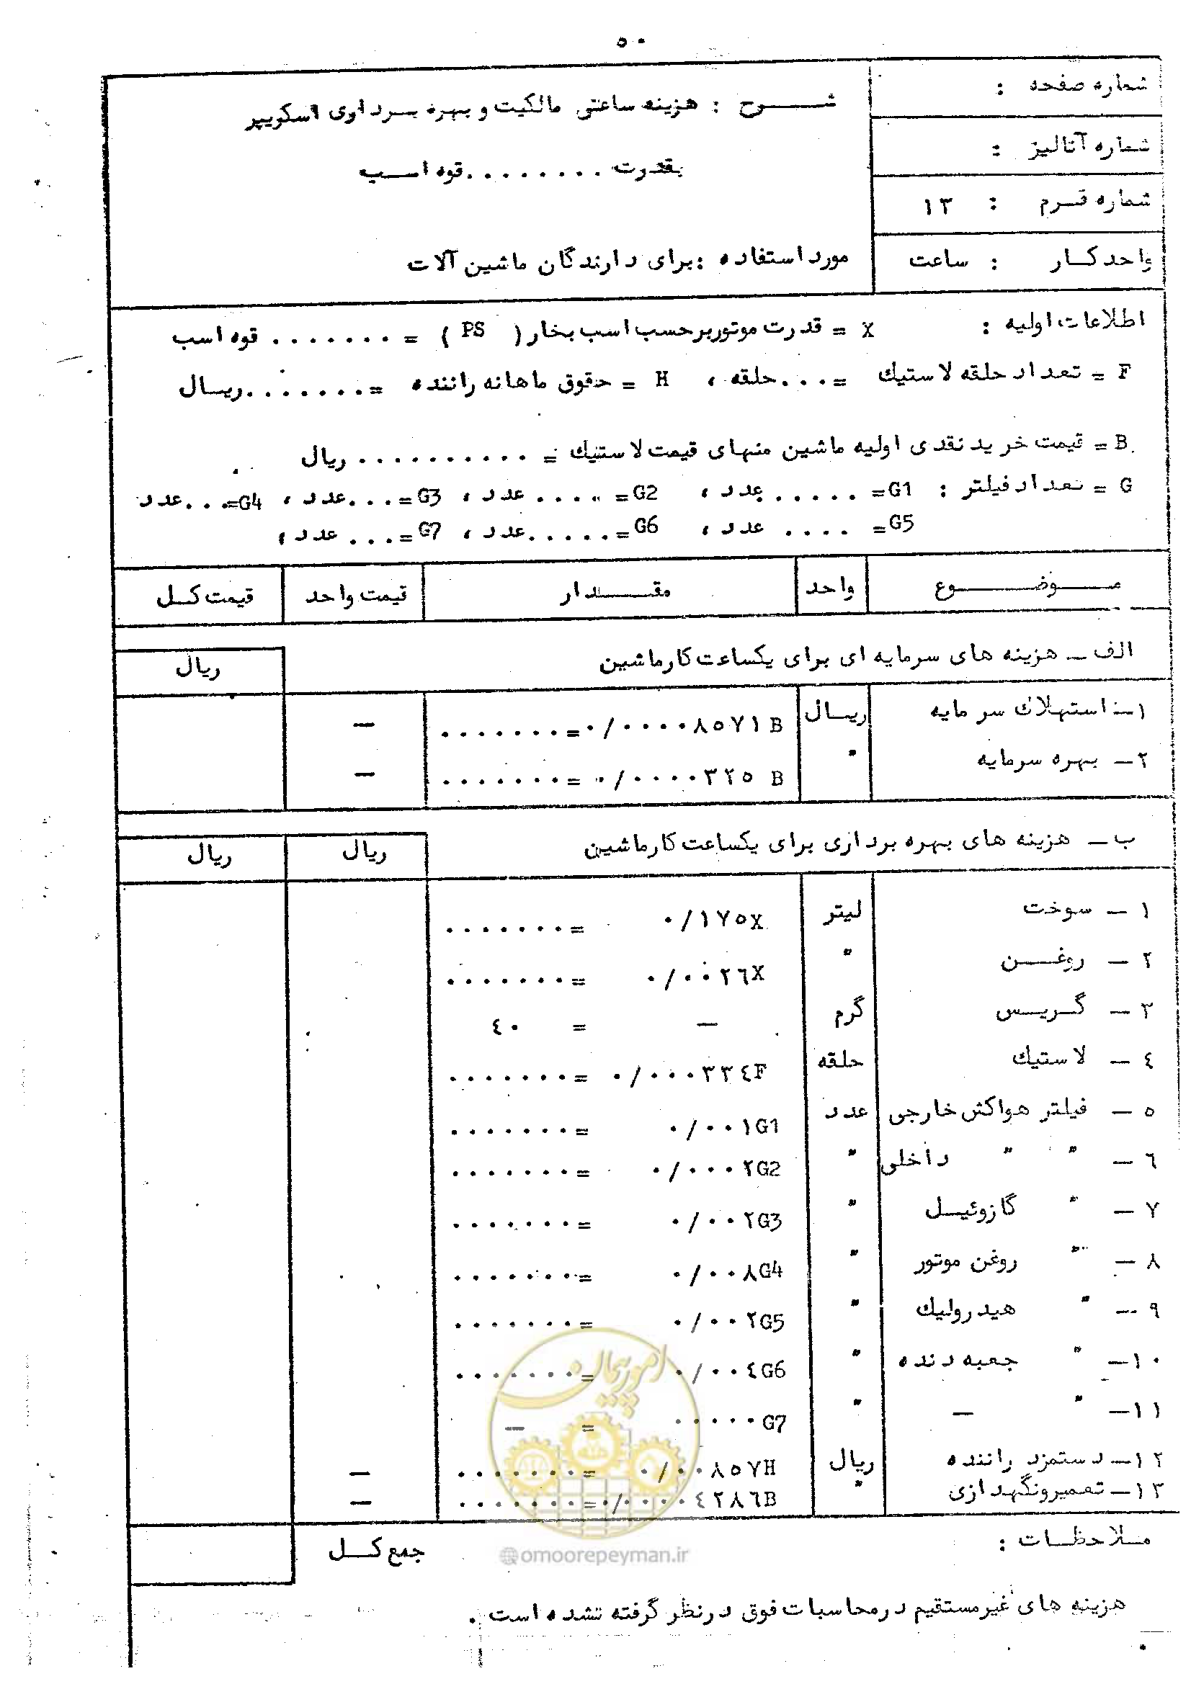 ۵۰
شماره صفحه :
شماره آنالیز :
شماره فرم : ۱۳
واحد کار : ساعت
شرح : هزینه ساعتی مالکیت و بهره برداری اسکویپر
بقدرت ........ قوه اسب
مورد استفاده : برای دارندگان ماشین آلات
اطلاعات اولیه : X = قدرت موتور برحسب اسب بخار ( PS ) = ....... قوه اسب
F = تعداد حلقه لاستیك = ... حلقه ، H = حقوق ماهانه راننده = ....... ریال
B = قیمت خرید نقدی اولیه ماشین منهای قیمت لاستیك = .......... ریال
G = تعداد فیلتر : G1= ..... عدد ، G2= .... عدد ، G3= ... عدد ، G4= ... عدد
G5= .... عدد ، G6= ..... عدد ، G7= ... عدد ،
موضوع | واحد | مقدار | قیمت واحد | قیمت کل
الف ــ هزینه های سرمایه ای برای یکساعت کار ماشین | ریال
۱ــ استهلاك سرمایه | ریال | ۰/۰۰۰۰۸۵۷۱ B = ....... | —
۲ــ بهره سرمایه | " | ۰/۰۰۰۰۳۲۵ B = ....... | —
ب ــ هزینه های بهره برداری برای یکساعت کار ماشین | ریال | ریال
۱ ــ سوخت | لیتر | ۰/۱۷۵X = .......
۲ ــ روغن | " | ۰/۰۰۲٦X = .......
۳ ــ گریس | گرم | — = ٤۰
٤ ــ لاستیك | حلقه | ۰/۰۰۰۳۳٤F = .......
۵ ــ فیلتر هواکش خارجی | عدد | ۰/۰۰۱G1 = .......
٦ ــ " " داخلی | " | ۰/۰۰۰۲G2 = .......
۷ ــ " گازوئیل | " | ۰/۰۰۲G3 = .......
۸ ــ " روغن موتور | " | ۰/۰۰۸G4 = .......
۹ ــ " هیدرولیك | " | ۰/۰۰۲G5 = .......
۱۰ــ " جعبه دنده | " | ۰/۰۰٤G6 = .......
۱۱ــ " — | " | ..... G7 = —
۱۲ــ دستمزد راننده | ریال | ۰/۰۰۸۵۷H = ....... | —
۱۳ــ تعمیرونگهداری | " | ۰/۰۰۰۰٤۲۸٦B = ....... | —
ملاحظات : جمع کل
هزینه های غیرمستقیم درمحاسبات فوق درنظر گرفته نشده است .
امور پیمان
@omoorepeyman.ir